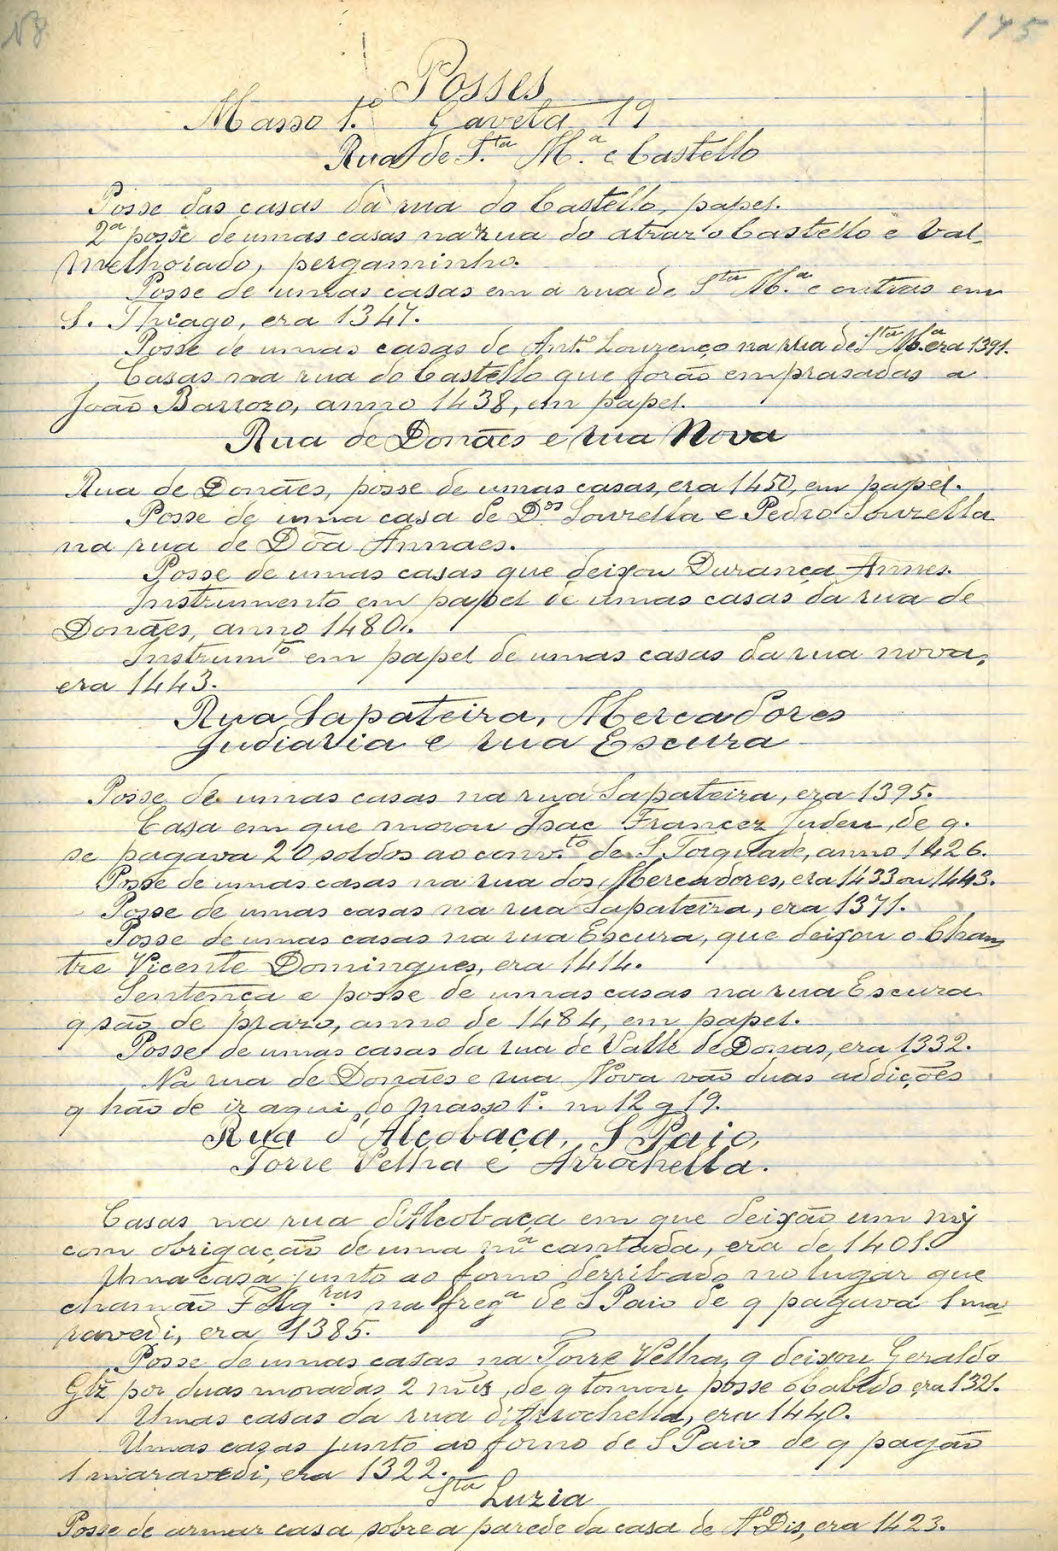 145
Posses
Masso 1.º Gaveta 19
Rua de S.ta M.a e Castello
Posse das casas da rua do Castello, papel.
2ª posse de umas casas na rua do atraz o Castello e Val
Melhorado, pergaminho.
Posse de umas casas em a rua de Sta M.a e outras em
S. Thiago, era 1347.
Posse de umas casas de Ant.º Lourenço na rua de Sta M.a era 1391.
Casas na rua do Castello que forão emprasadas a
João Barrozo, anno 1438, em papel.
Rua de Donães e rua Nova
Rua de Donães, posse de umas casas, era 1450, em papel.
Posse de uma casa de D.os Lourella e Pedro Lourella
na rua de Dõa Annaes.
Posse de umas casas que deixou Durança Annes.
Instrumento em papel de umas casas da rua de
Donães, anno 1480.
Instrum.to em papel de umas casas da rua nova,
era 1443.
Rua Sapateira, Mercadores
Judiaria e rua Escura
Posse de umas casas na rua Sapateira, era 1395.
Casa em que morou Isac Francez Judeu, de q.
se pagava 20 soldos ao conv.to de S Torquade, anno 1426.
Posse de umas casas na rua dos Mercadores, era 1433 ou 1443.
Posse de umas casas na rua Sapateira, era 1371.
Posse de umas casas na rua Escura, que deixou o Chan
tre Vicente Domingues, era 1414.
Sentença e posse de umas casas na rua Escura
q são de prazo, anno de 1484, em papel.
Posse de umas casas da rua de Valle de Donas, era 1332.
Na rua de Donães e rua Nova vão duas addições
q hão de ir aqui do masso 1º. m 12 g 19.
Rua d'Alcobaça, S Paio,
Torre Velha e Arrochella.
Casas na rua d'Alcobaça em que deixão um mj
com obrigação de uma mª cantada, era de 1401.
Uma casa junto ao forno derribado no lugar que
chamão na freg.a de S Paio de q pagava 1 ma
ravedi, era 1385.
Posse de umas casas na Torre Velha, q deixou Geraldo
Glz por duas moradas 2 de q tomou posse o Cabido era 1321.
Umas casas da rua d'Arrochella, era 1440.
Umas cazas junto ao forno de S Paio de q pagão
1 maravedi, era 1322.
Sta Luzia
Posse de armar casa sobre a parede da casa de Aº Dis, era 1423.